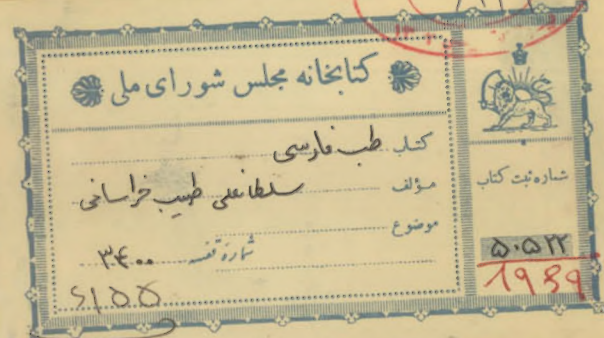 کتابخانه مجلس شورای ملی
کتاب طب فارسی
مؤلف سلطانعلی طبیب خراسانی
موضوع
شماره قفسه ۳۴۰۰
شماره ثبت کتاب
۵۰۵۲۲
1939